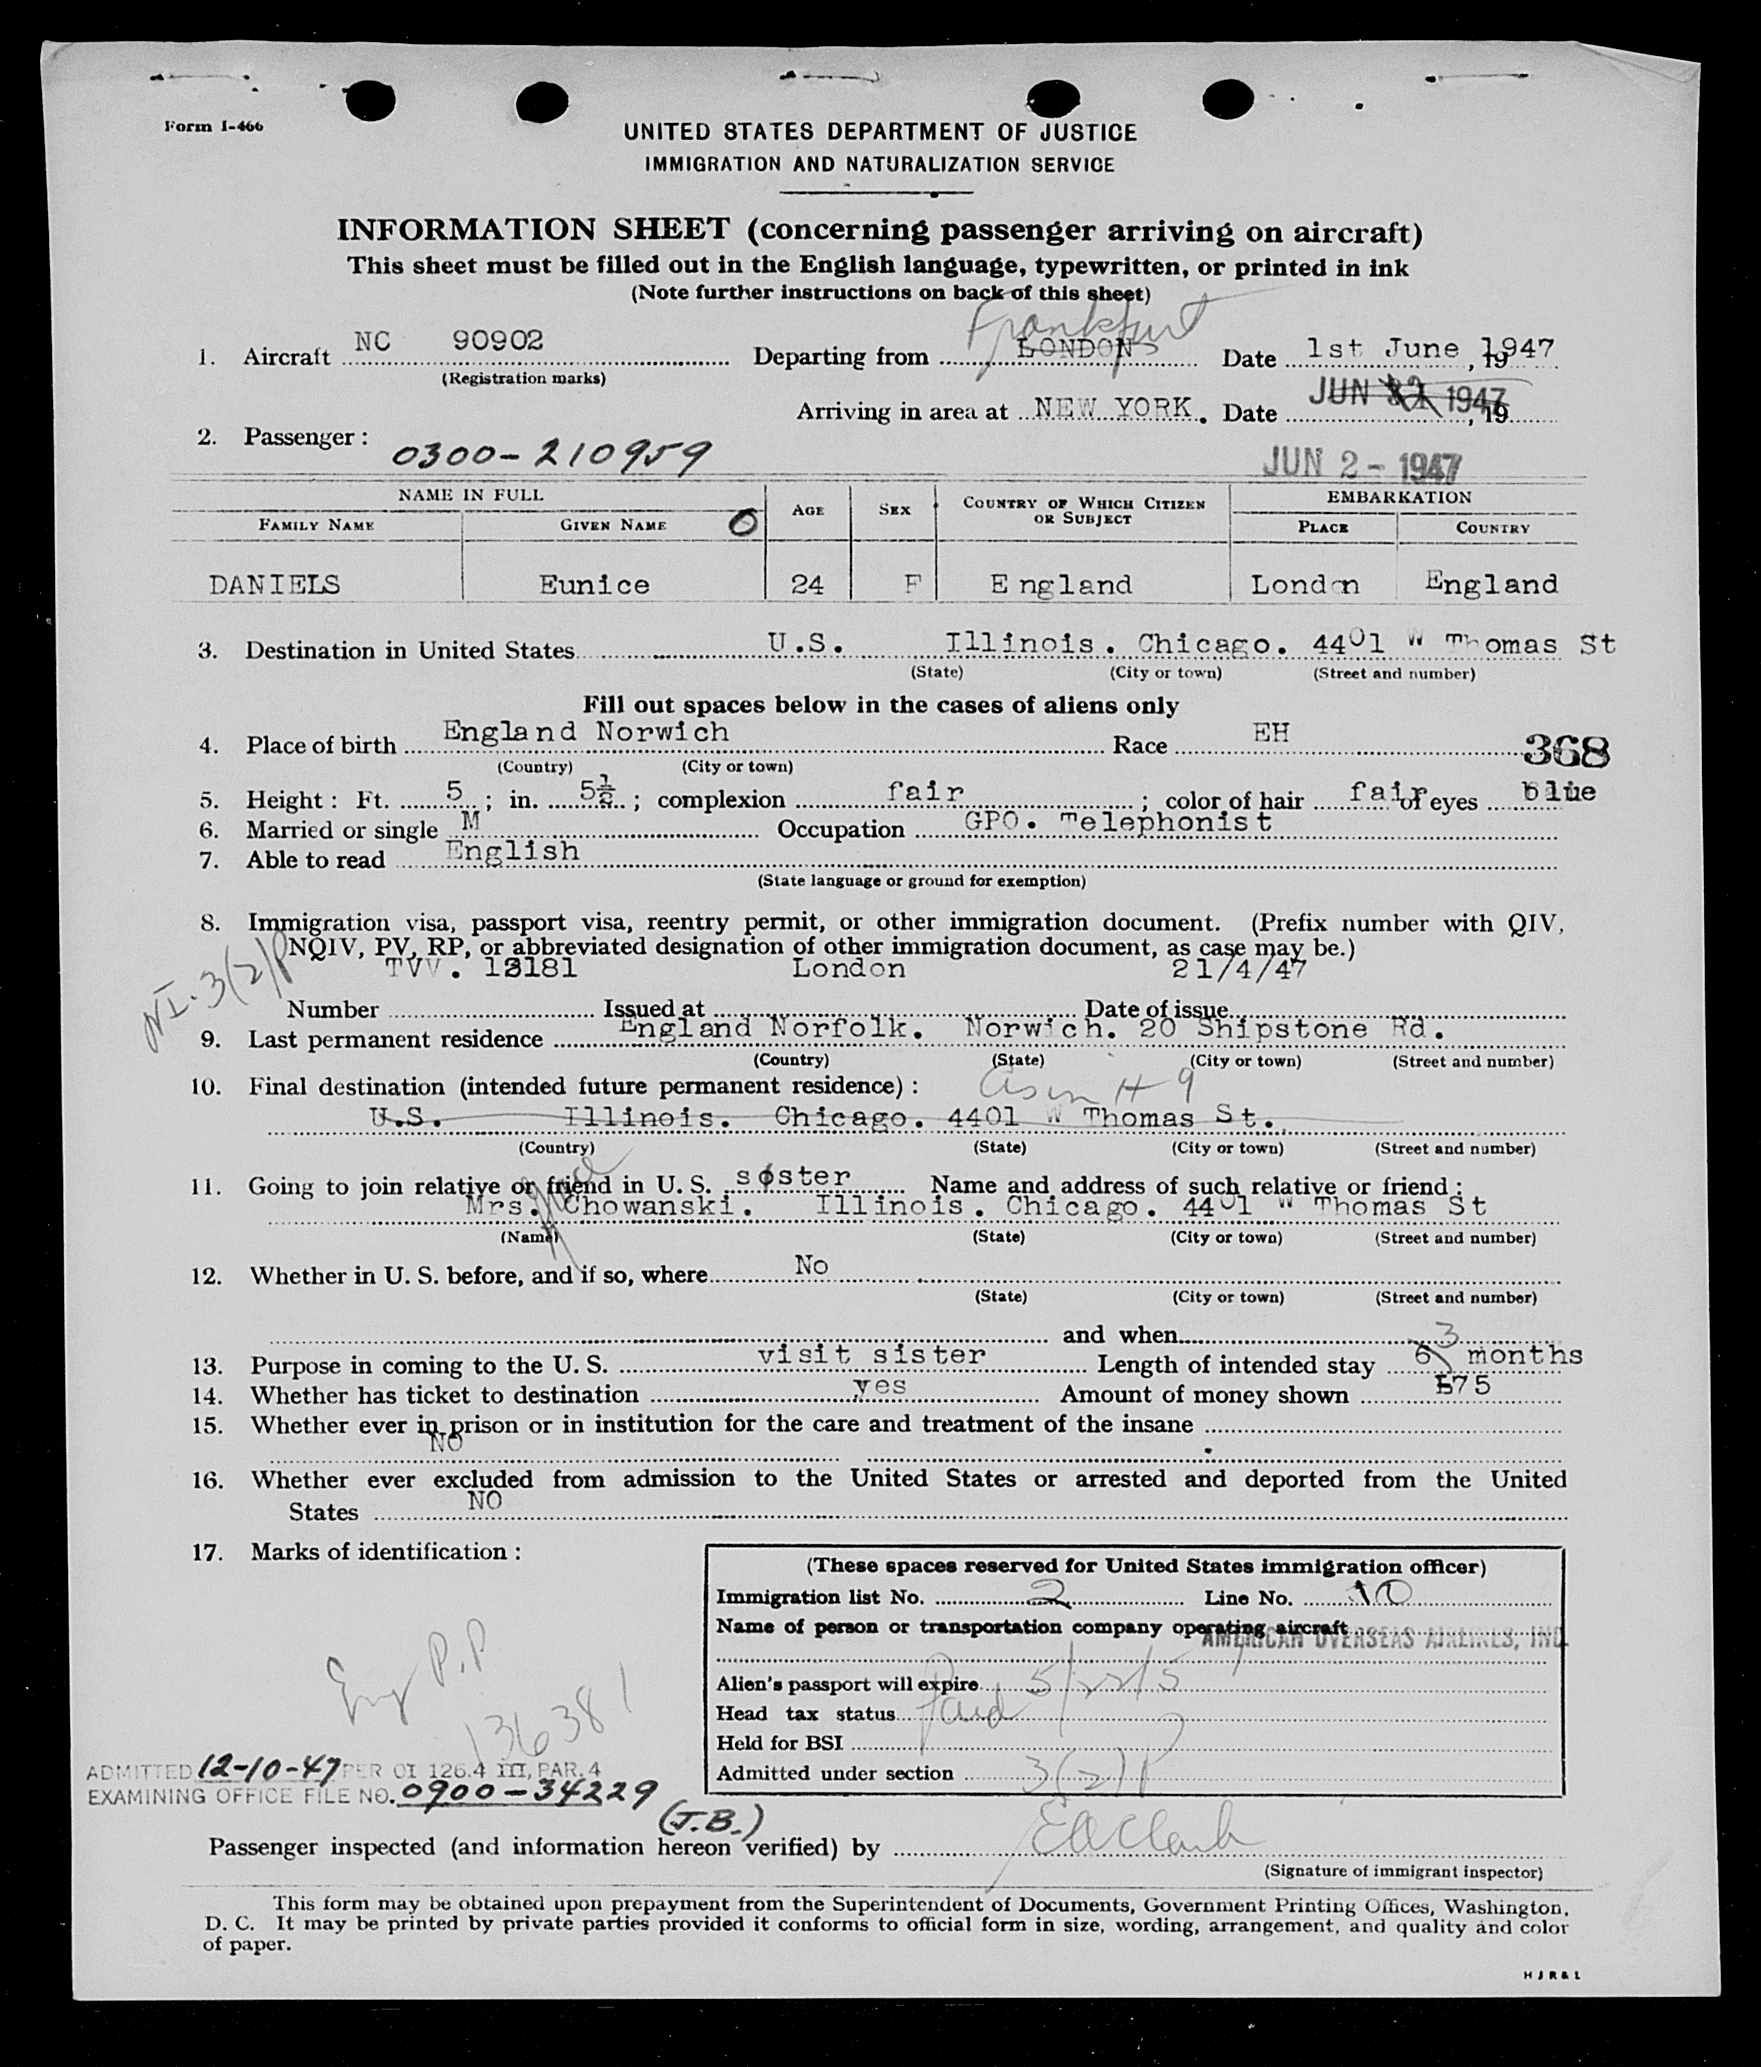 Form I-466
UNITED STATES DEPARTMENT OF JUSTICE
IMMIGRATION AND NATURALIZATION SERVICE
INFORMATION SHEET (concerning passenger arriving on aircraft)
This sheet must be filled out in the English language, typewritten, or printed in ink
(Note further instructions on back of this sheet)
Frankfurt
1. Aircraft NC 90902 Departing from LONDON Date 1st June 1947, 19
(Registration marks)
Arriving in area at NEW YORK. Date JUN 1947, 19
2. Passenger: 0300-210959 JUN 2 - 1947
NAME IN FULL AGE SEX COUNTRY OF WHICH CITIZEN OR SUBJECT EMBARKATION
FAMILY NAME GIVEN NAME O PLACE COUNTRY
DANIELS Eunice 24 F England London England
3. Destination in United States U.S. Illinois. Chicago. 4401 W Thomas St
(State) (City or town) (Street and number)
Fill out spaces below in the cases of aliens only
4. Place of birth England Norwich Race EH 368
(Country) (City or town)
5. Height: Ft. 5; in. 5½; complexion fair; color of hair fair of eyes blue
6. Married or single M Occupation GPO. Telephonist
7. Able to read English
(State language or ground for exemption)
8. Immigration visa, passport visa, reentry permit, or other immigration document. (Prefix number with QIV,
NQIV, PV, RP, or abbreviated designation of other immigration document, as case may be.)
TVV. 13181 London 21/4/47
NI-3(2)P
Number Issued at Date of issue
9. Last permanent residence England Norfolk. Norwich. 20 Shipstone Rd.
(Country) (State) (City or town) (Street and number)
10. Final destination (intended future permanent residence):
as in # 9
U.S. Illinois. Chicago. 4401 W Thomas St.
(Country) (State) (City or town) (Street and number)
11. Going to join relative or friend in U. S. sister Name and address of such relative or friend:
Mrs. Chowanski. Illinois. Chicago. 4401 W Thomas St
(Name) (State) (City or town) (Street and number)
12. Whether in U. S. before, and if so, where No
(State) (City or town) (Street and number)
and when
13. Purpose in coming to the U. S. visit sister Length of intended stay 6 3 months
14. Whether has ticket to destination yes Amount of money shown £75
15. Whether ever in prison or in institution for the care and treatment of the insane
NO
16. Whether ever excluded from admission to the United States or arrested and deported from the United
States NO
17. Marks of identification:
(These spaces reserved for United States immigration officer)
Immigration list No. 2 Line No. 10
Name of person or transportation company operating aircraft AMERICAN OVERSEAS AIRLINES, INC.
Alien's passport will expire 5/22/51
Head tax status Paid
Held for BSI
Admitted under section 3(2)P
Eng P.P
136381
ADMITTED 12-10-47 PER OI 126.4 III, PAR. 4
EXAMINING OFFICE FILE NO. 0900-34229
(J.B.)
Passenger inspected (and information hereon verified) by EA Clark
(Signature of immigrant inspector)
This form may be obtained upon prepayment from the Superintendent of Documents, Government Printing Offices, Washington,
D. C. It may be printed by private parties provided it conforms to official form in size, wording, arrangement, and quality and color
of paper.
H J R & L